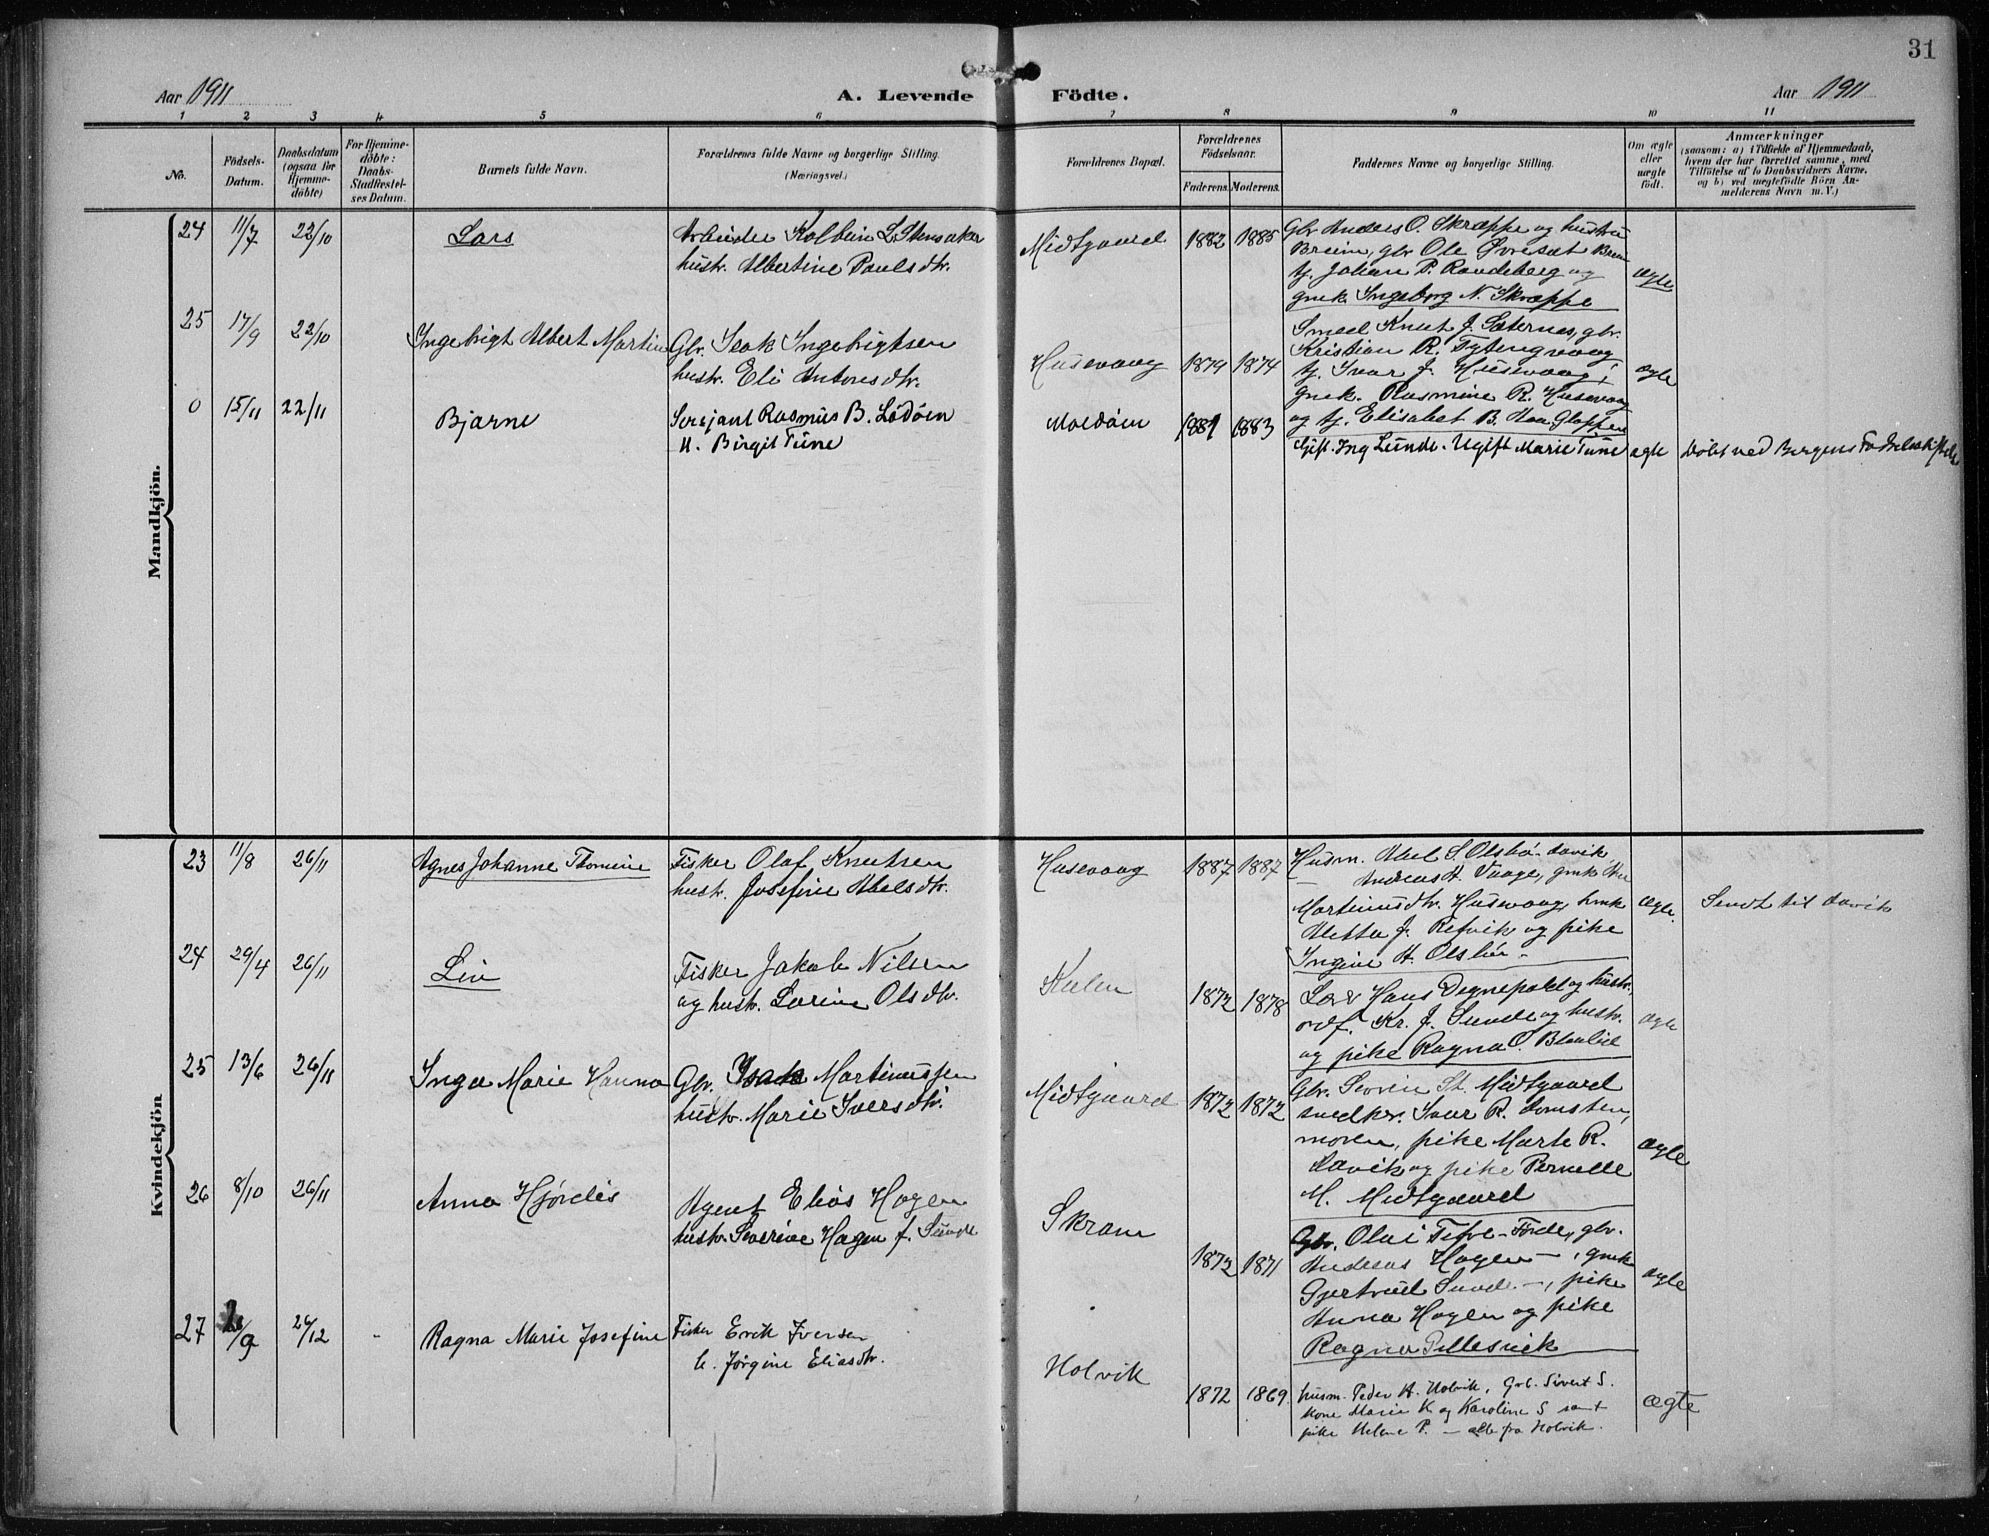 31
Aar 1911
A. Levende Födte.
Aar 1911
1 2 3 4 5 6 7 8 9 10 11
No.
Födsels-Datum.
Daabsdatum (ogsaa for Hjemme-döbte)
For Hjemme-döbte: Daabs-Stadfæstel-ses Datum.
Barnets fulde Navn.
Forældrenes fulde Navne og borgerlige Stilling.
(Næringsvei.)
Forældrenes Bopæl.
Forældrenes Födselsaar.
Faderens. Moderens.
Faddernes Navne og borgerlige Stilling.
Om ægte eller uægte födt.
Anmærkninger
(saasom: a) i Tilfælde af Hjemmedaab,
hvem der har forrettet samme, med
Tilföielse af to Daabsvidners Navne,
og b) ved uægtefödte Börn An-
melderens Navn m. V.)
Mandkjön.
24 11/7 22/10 Lars
Arbeider Kolbein L. Stensaker
hustr. Albertine Paulsdtr.
Midtgaard 1882 1885
Gbr Anders O. Skræppe og hustru
Breim, gbr Ole Övresæt
tj. Johan P. Raudeberg og
gmk. Ingeborg N. Skræppe
ægte
25 17/9 22/10 Ingebrigt Albert Martin
Gbr. Isak Ingebrigtsen
hustr. Eli Antonsdtr.
Husevaag 1879 1874
Smed Knut J. Sæternes, gbr.
Kristian R. Tytingvaag,
tj. Ivar J. Husevaag,
gmk. Rasmine R. Husevaag
og tj. Elisabet B. Gloppen
ægte
0 15/11 22/11 Bjarne
Sersjant Rasmus B. Lödöen
H. Birgit Tune
Moldöen 1881 1883
Gift. Ing Lunde. Ugift Marie Tune
ægte
Döbt ved Bergens Födselsstiftelse
Kvindekjön
23 11/8 26/11 Agnes Johanne Thomine
Fisker Olaf Knutsen
hustr. Josefine Abelsdtr.
Husevaag 1887 1887
Husm. Abel S. Olsbö - Davik
Andreas A. Vaage, gmk
Martinusdtr. Husevaag, hmk
Aletta J. Refvik og pike
Ingine A. Olsbö -
ægte. Sendt til Davik
24 29/4 26/11 Liv
Fisker Jakob Nilsen
og hustr. Lovine Olsdtr.
Kulen 1872 1878
Hans Degnepoll og hustr.,
ordf. Kr. J. Sunde og hustr.
og pike Ragna O. Blaalid
ægte
25 13/6 26/11 Inga Marie Hanna
Gbr. Isak Martinussen
hustr. Marie Iversdtr.
Midtgaard 1872 1872
Gbr. Severin St. Midtgaard
snedker Ivar R. Domsten,
moren, pike Marte R.
Davik og pike Pernelle
M. Midtgaard
ægte
26 8/10 26/11 Anna Hjördis
Agent Elias Hagen
hustr. Severine Hagen f. Sunde
Skram 1872 1871
Gbr. Olai Tefre - Förde, gbr.
Andreas Hagen -, gmk
Gjertrud Sunde -, pike
Anna Hagen og pike
Ragna Pillesvik
ægte
27 /9 26/12 - Ragna Marie Josefine
Fisker Erik Iversen
h. Jørgine Eliasdtr.
Holvik 1872 1869.
husm. Peder A. Holvik, Grb. Sivert S.
kone Marie K. og Karoline S samt
pike Helene P. - alle fra Holvik.
ægte